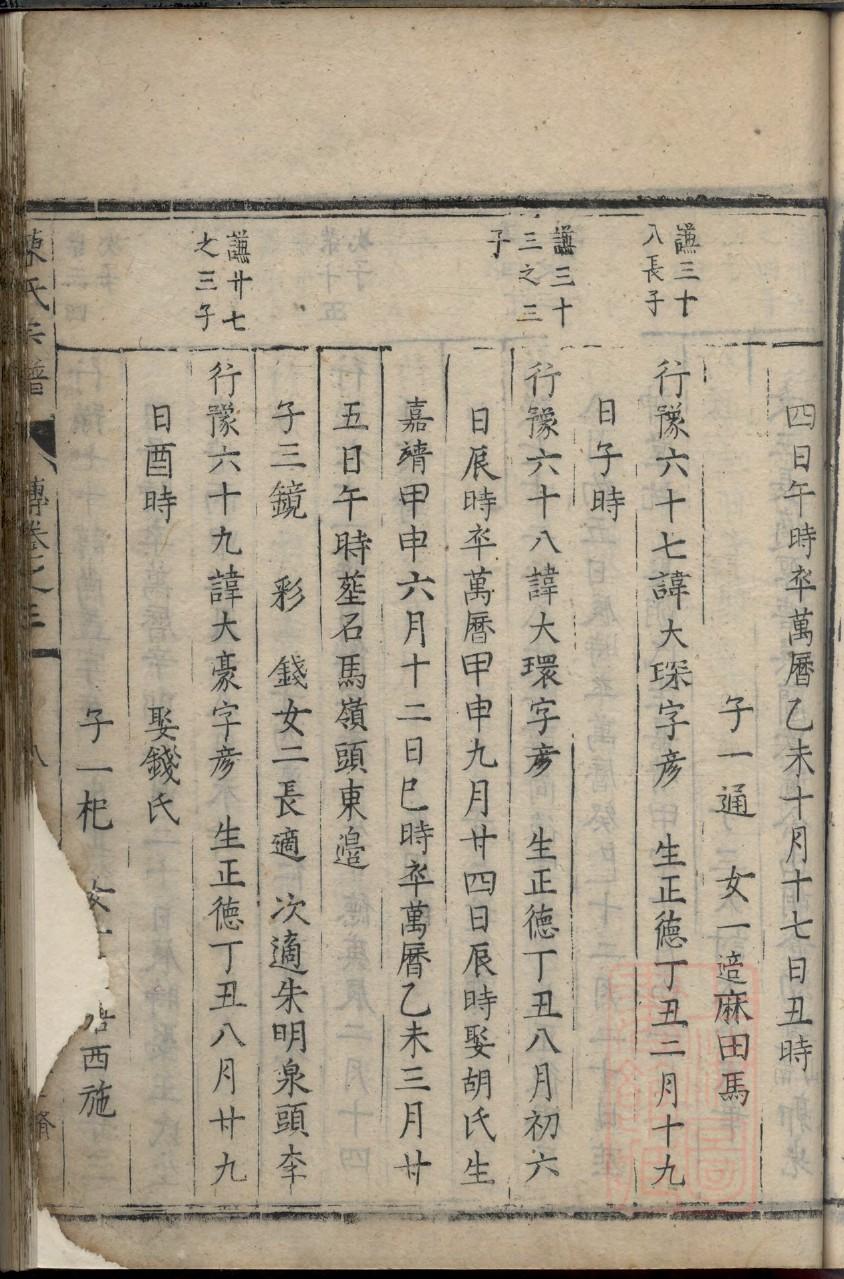 四日午時卒萬曆乙未十月十七日丑時
子一通 女一適麻田馬
謙三十
八長子
行豫六十七諱大琛字彦 生正德丁丑二月十九
日子時
謙三十
三之三
子
行豫六十八諱大環字彦 生正德丁丑八月初六
日辰時卒萬曆甲申九月廿四日辰時娶胡氏生
嘉靖甲申六月十二日巳時卒萬曆乙未三月廿
五日午時塟石馬嶺頭東邉
子三鏡 彩 錢女二長適 次適朱明泉頭李
謙廿七
之三子
行豫六十九諱大豪字彦 生正德丁丑八月廿九
日酉時 娶錢氏
子一杞 女 西施
陳氏宗譜 傳卷之三 八